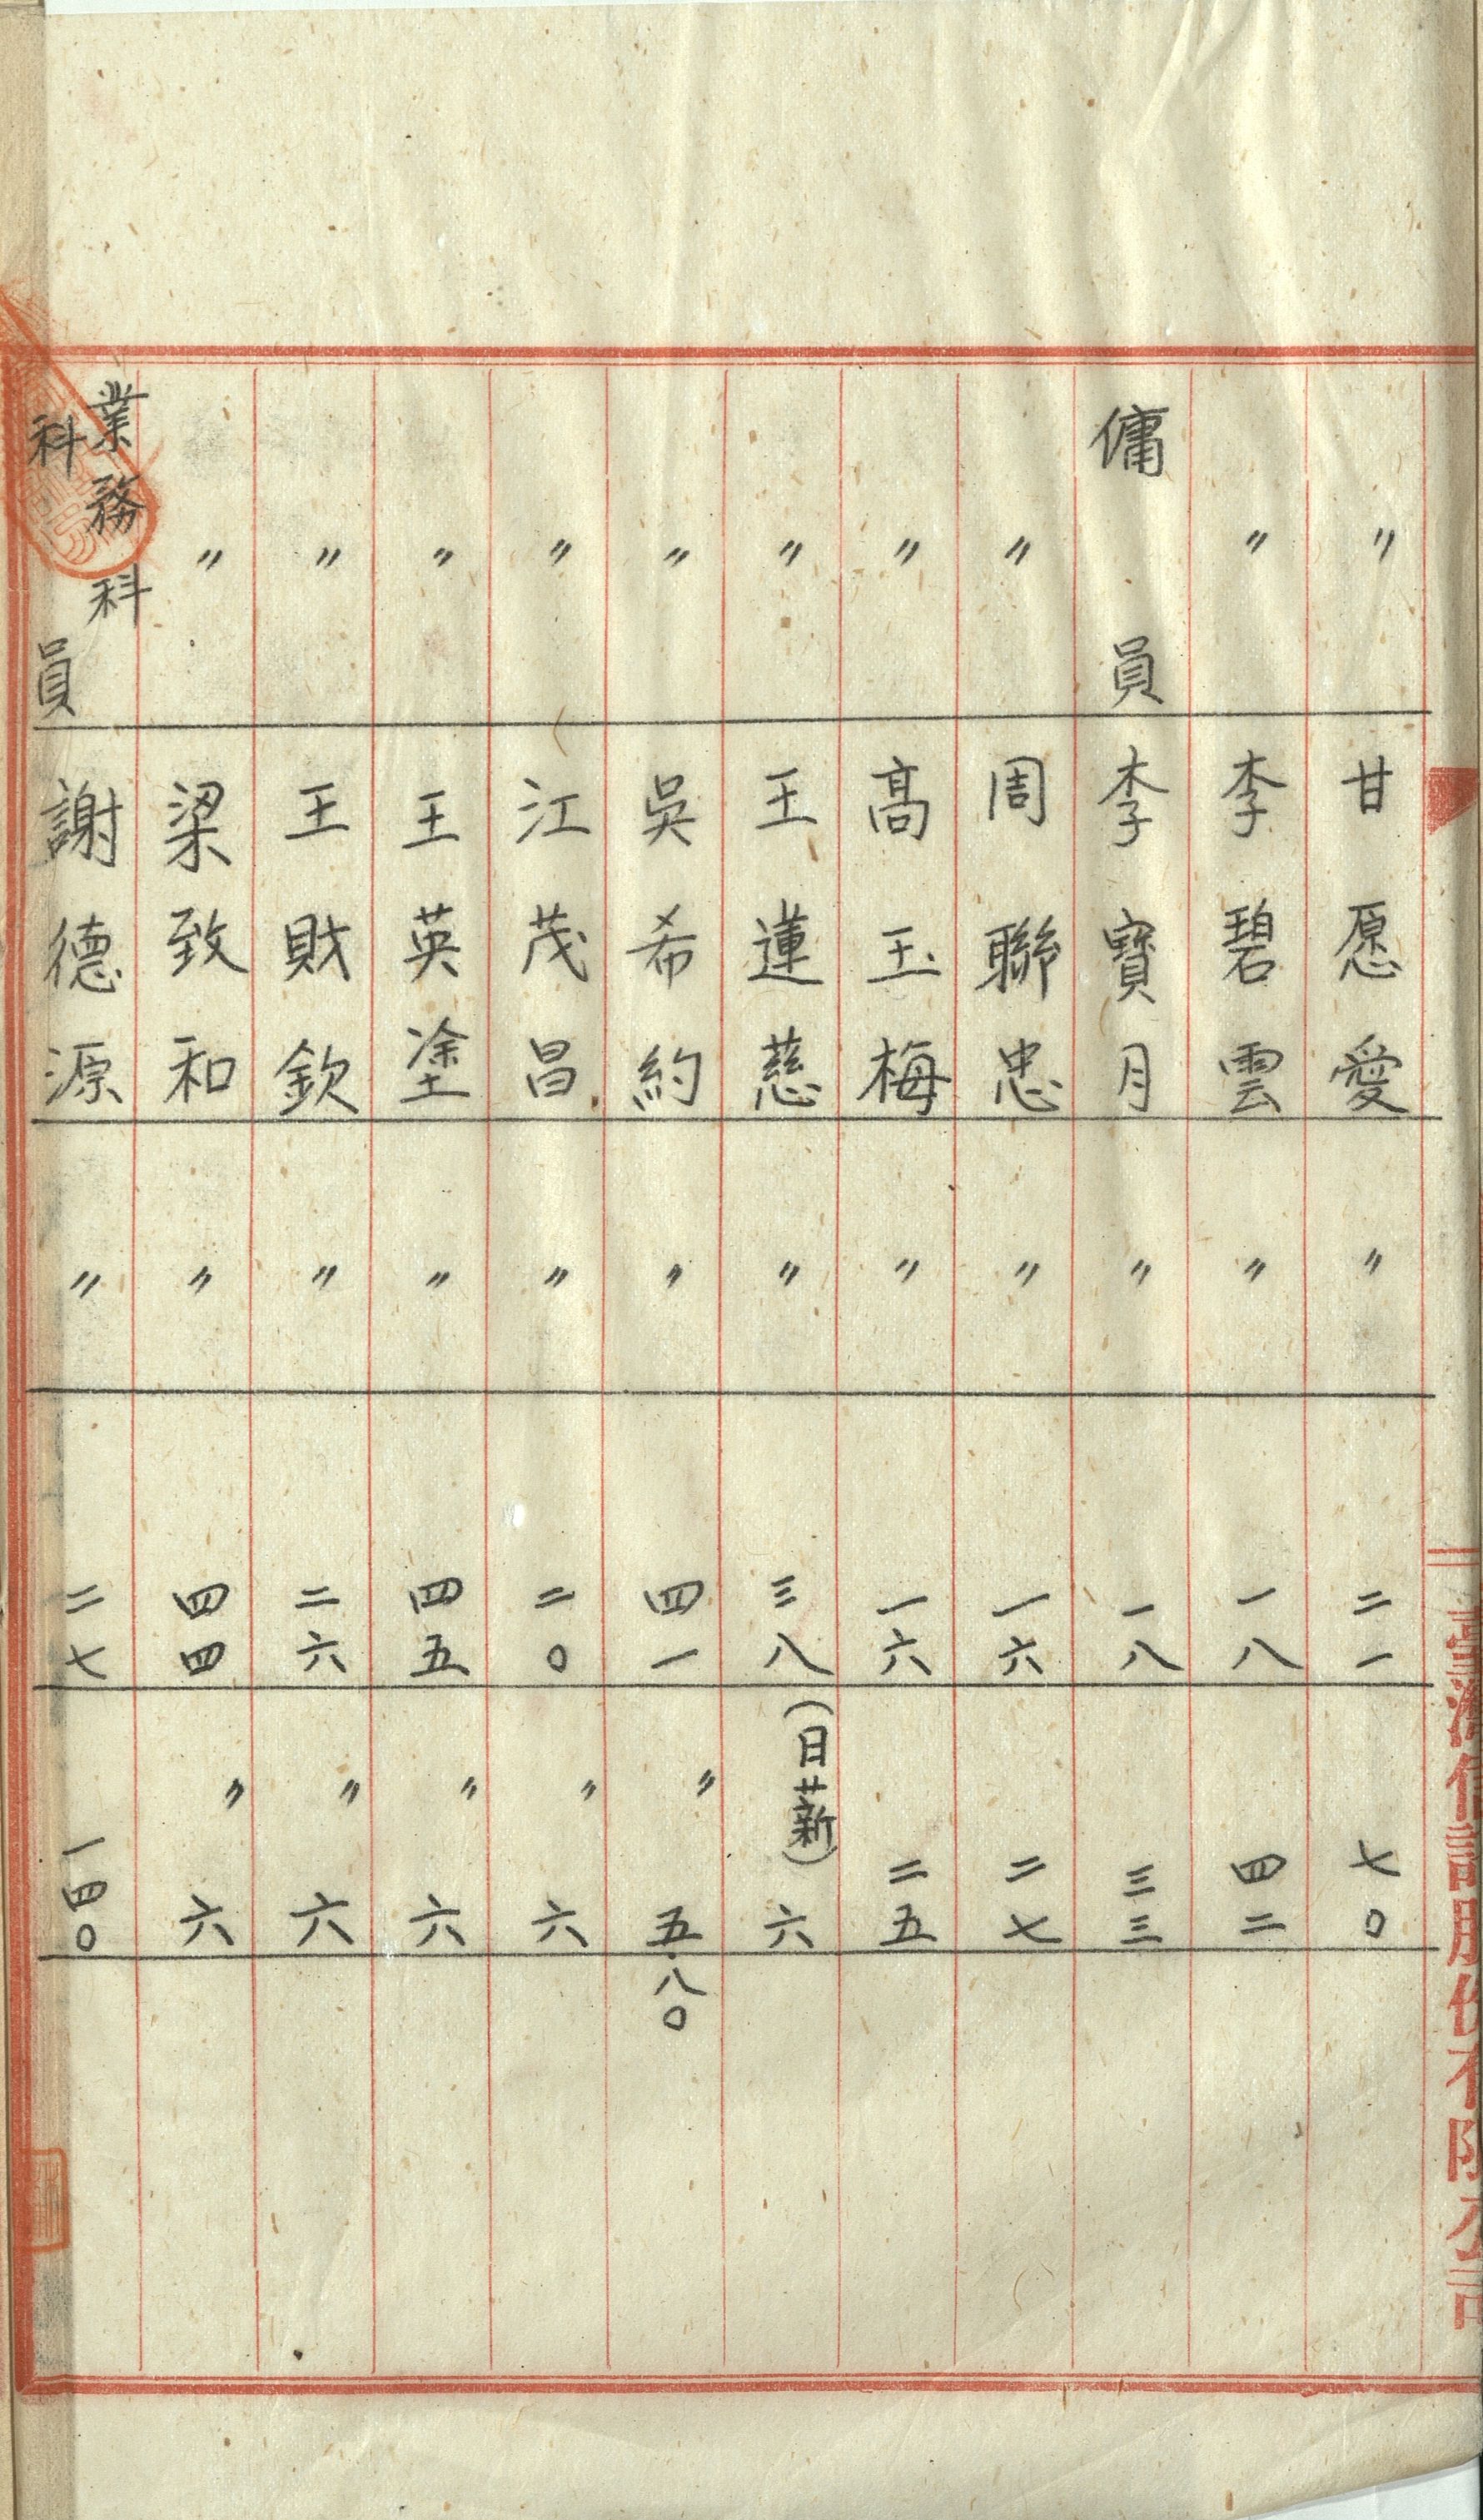 〃 甘愿愛 〃 二一 七〇
〃 李碧雲 〃 一八 四二
傭員 李寶月 〃 一八 三三
〃 周聯忠 〃 一六 二七
〃 高玉梅 〃 一六 二五
〃 王蓮慈 〃 三八 (日薪) 六
〃 吳希約 〃 四一 〃 五.八〇
〃 江茂昌 〃 二〇 〃 六
〃 王英塗 〃 四五 〃 六
〃 王財欽 〃 二六 〃 六
〃 梁致和 〃 四四 〃 六
業務科
科員 謝德源 〃 二七 一四〇